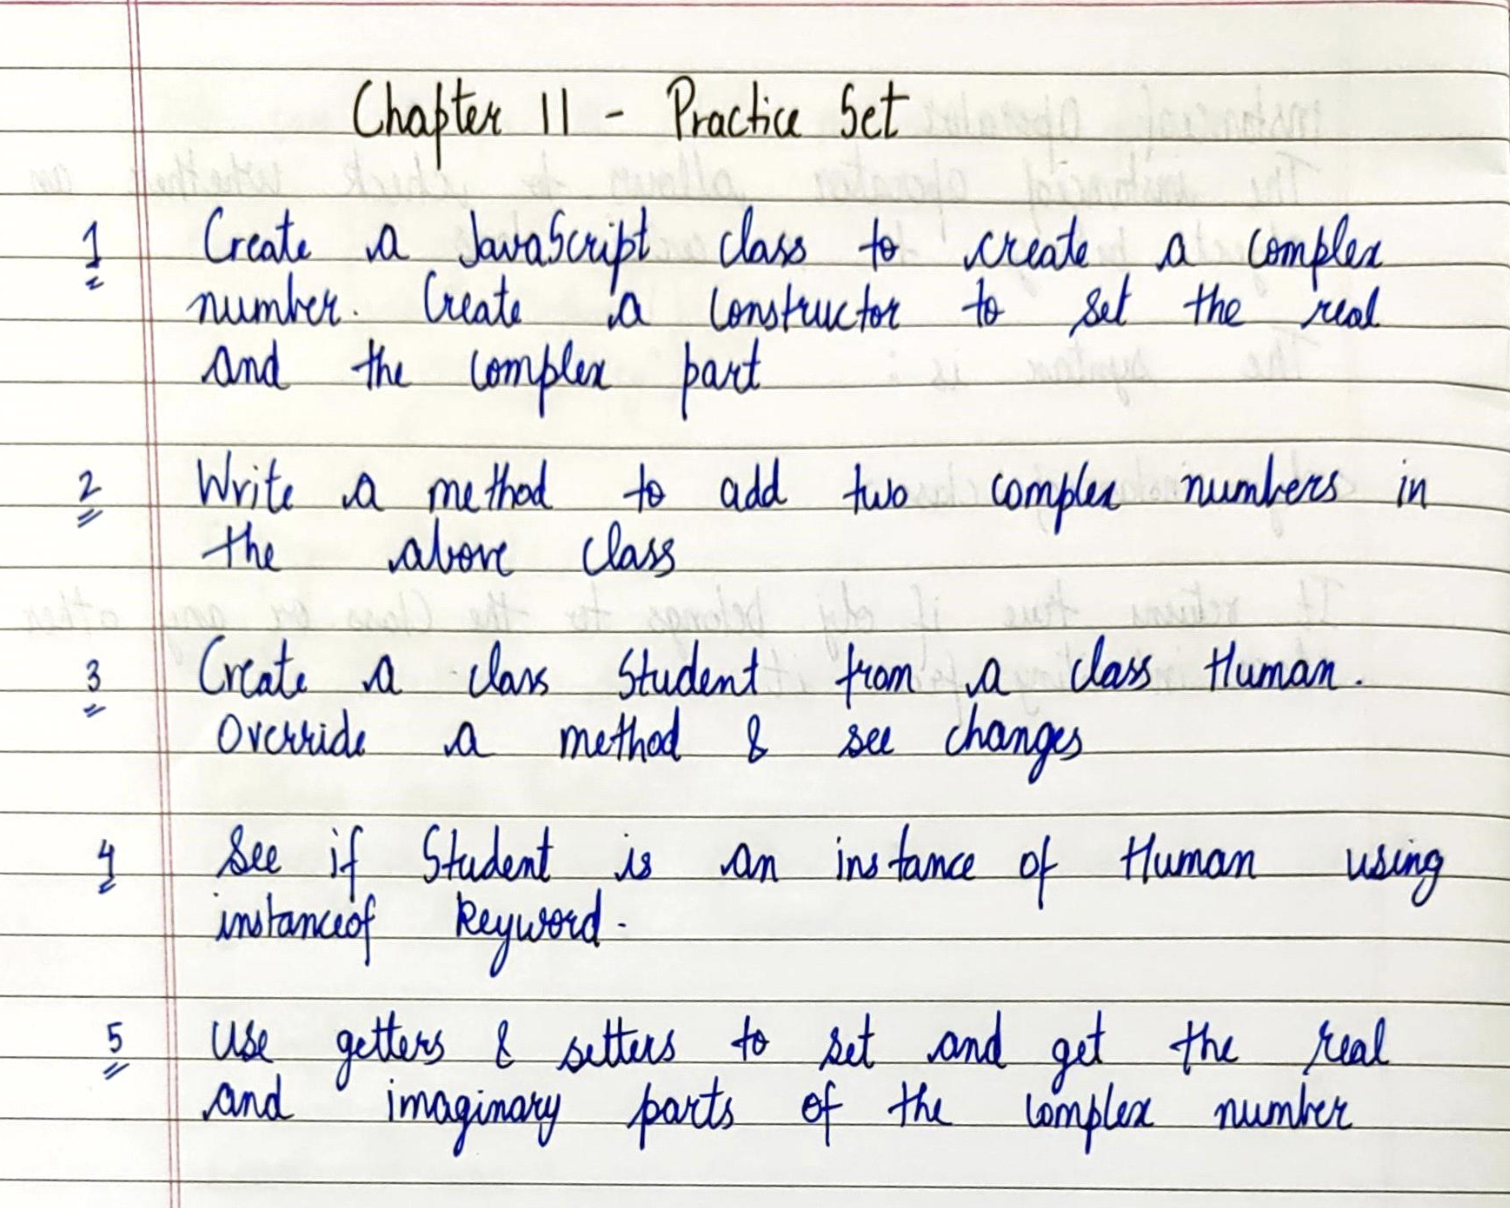 Chapter 11 - Practice Set
1 Create a JavaScript class to create a complex
number. Create a constructor to set the real
and the complex part
2 Write a method to add two complex numbers in
the above class
3 Create a class Student from a class Human.
Override a method & see changes
4 See if Student is an instance of Human using
instanceof keyword.
5 Use getters & setters to set and get the real
and imaginary parts of the complex number